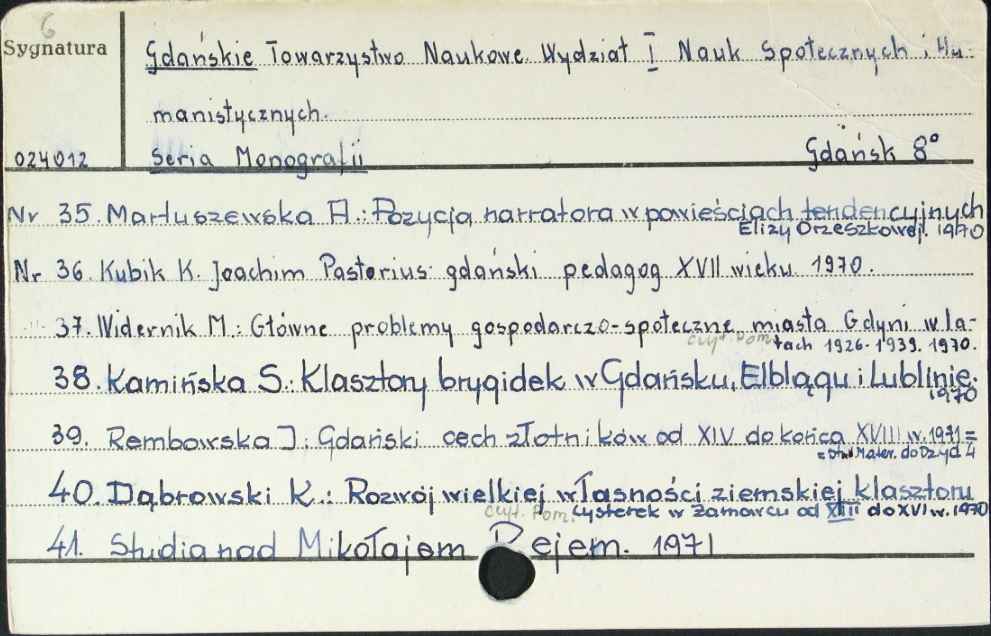 6
Sygnatura
Gdańskie Towarzystwo Naukowe. Wydział I Nauk Społecznych i Hu-
manistycznych.
024012
Seria Monografii
Gdańsk 8°
Nr 35. Martuszewska A.: Pozycja narratora w powieściach tendencyjnych
Elizy Orzeszkowej. 1970
Nr 36. Kubik K. Joachim Pastorius gdański pedagog XVII wieku 1970.
37. Widernik M.: Główne problemy gospodarczo-społeczne miasta Gdyni w la-
czyt. Pom.
tach 1926-1939. 1970.
38. Kamińska S.: Klasztory brygidek w Gdańsku, Elblągu i Lublinie.
1970
39. Rembowska I.: Gdański cech złotników od XIV do końca XVIII w. 1971 =
= Mater. do Dzej 4
40. Dąbrowski K.: Rozwój wielkiej własności ziemskiej klasztoru
czyt. Pom.
cysterek w Żarnowcu od XIII do XVI w. 1970
41. Studia nad Mikołajem Rejem. 1971